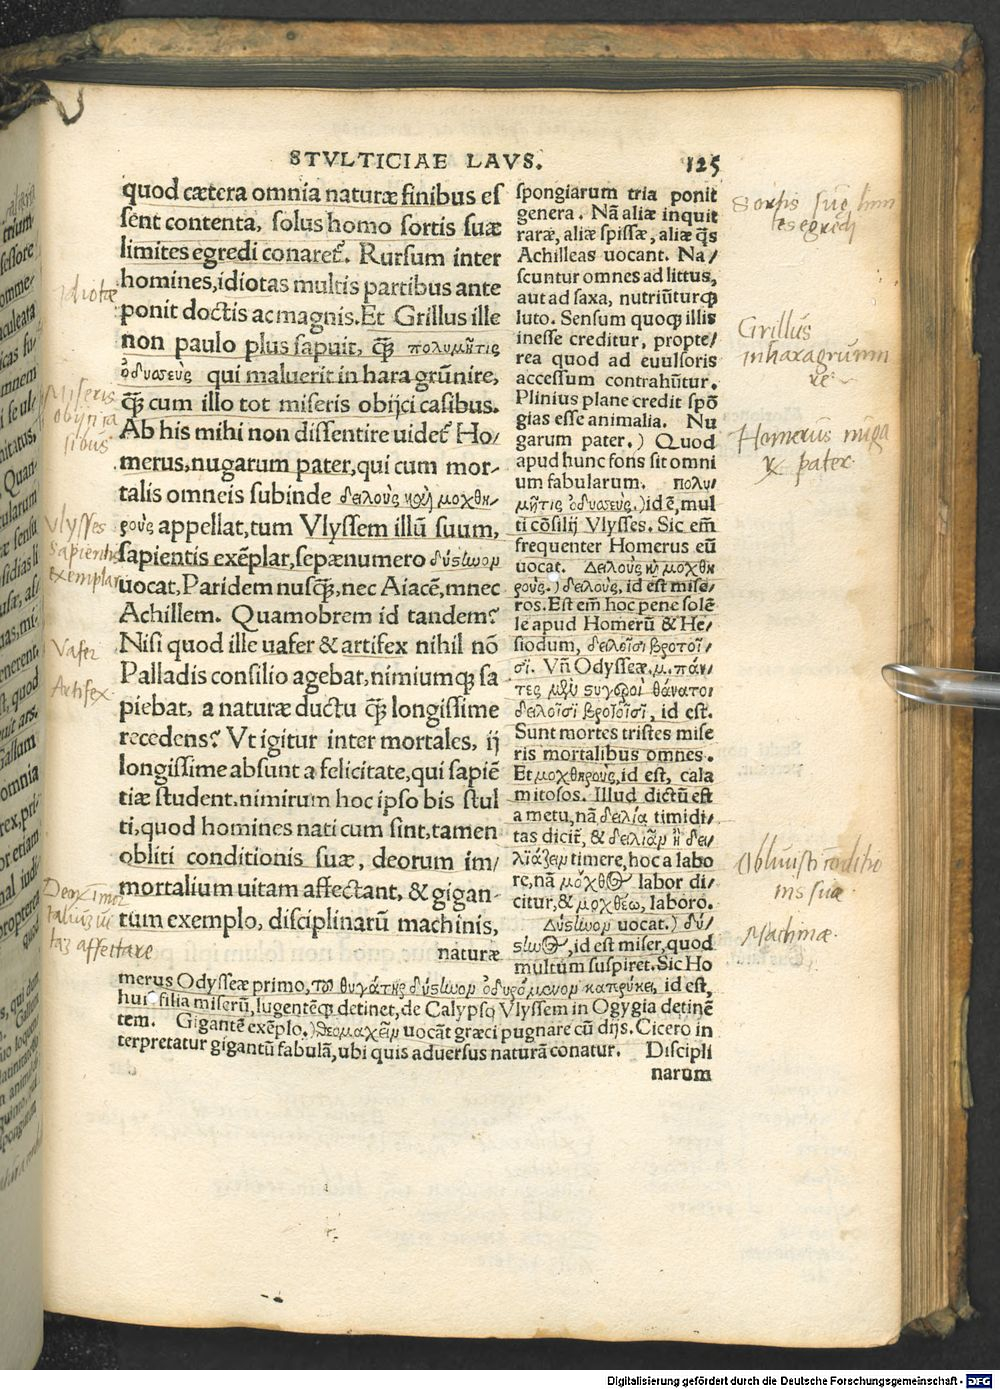 STVLTICIAE LAVS. 125
quod cætera omnia naturæ finibus es
sent contenta, solus homo sortis suæ
limites egredi conaret̃. Rursum inter
homines, idiotas multis partibus ante
ponit doctis ac magnis. Et Grillus ille
non paulo plus sapuit, q̃ πολυμῆτις
ὀδυσσεὺς qui maluerit in hara grũnire,
q̃ cum illo tot miseris obijci casibus.
Ab his mihi non dissentire uidet̃ Ho/
merus, nugarum pater, qui cum mor-
talis omneis subinde δειλοὺς καὶ μοχθη-
ροὺς appellat, tum Vlyssem illũ suum,
sapientis exẽplar, sepænumero δύστωομ
uocat, Paridem nusq̃, nec Aiacẽ, mnec
Achillem. Quamobrem id tandem?
Nisi quod ille uafer & artifex nihil nõ
Palladis consilio agebat, nimiumqꝫ sa
piebat, a naturæ ductu q̃ longissime
recedens? Vt igitur inter mortales, ij
longissime absunt a felicitate, qui sapiẽ
tiæ student, nimirum hoc ipso bis stul
ti, quod homines nati cum sint, tamen
obliti conditionis suæ, deorum im/
mortalium uitam affectant, & gigan-
tum exemplo, disciplinarũ machinis,
naturæ
spongiarum tria ponit
genera. Nã aliæ inquit
raræ, aliæ spissæ, aliæ q̃s
Achilleas uocant. Na/
scuntur omnes ad littus,
aut ad saxa, nutriũturqꝫ
luto. Sensum quoqꝫ illis
inesse creditur, propte/
rea quod ad euulsoris
accessum contrahũtur.
Plinius plane credit spõ
gias esse animalia. Nu
garum pater.) Quod
apud hunc fons sit omni
um fabularum. πολυ
μῆτις ὀδυσεὺς.) id ẽ, mul
ti cõsilij Vlysses. Sic em̃
frequenter Homerus eũ
uocat. Δειλοὺς κὴ μοχθη
ροὺς.) δειλοὺς, id est mise/
ros. Est em̃ hoc pene solẽ
le apud Homerũ & He/
siodum, δειλοῖσι βροτοῖ/
σι. Vñ Odysseæ. μ. πάν/
τες μὲν στυγεροὶ θάνατοι
δειλοῖσι βροτοῖσι, id est.
Sunt mortes tristes mise
ris mortalibus omnes.
Et μοχθηροὺς, id est, cala
mitosos. Illud dictũ est
a metu, nã δειλία timidi/
tas dicit̃, & δειλιᾶμ ἢ δει/
λιάζειμ timere, hoc a labo
re, nã μόχθος labor di/
citur, & μοχθέω, laboro.
Δύστωομ uocat.) δύ/
στωος, id est miser, quod
multum suspiret. Sic Ho
merus Odysseæ primo, τοῦ θυγάτης δύστωομ ὀδυρόμονομ κατρύκει, id est,
hui⁹ filia miserũ, lugentẽqꝫ detinet, de Calypso Vlyssem in Ogygia detinẽ
tem. Gigantẽ exẽplo.) Θεομαχεῖμ uocãt græci pugnare cũ dijs. Cicero in
terpretatur gigantũ fabulã, ubi quis aduersus naturã conatur. Discipli
narum
Idiotæ
Miseris
obijci ca
sibus
Vlysses
sapientis
exemplar
Vafer
Artifex.
Deoꝝ immor
talium ui
tam affectare
Sortis suę limi
tes egredi
Grillus
in hara grunni
re
Homerus nuga
ꝝ pater.
Obliuisci conditio
nis suæ
Machinæ.
Digitalisierung gefördert durch die Deutsche Forschungsgemeinschaft - DFG